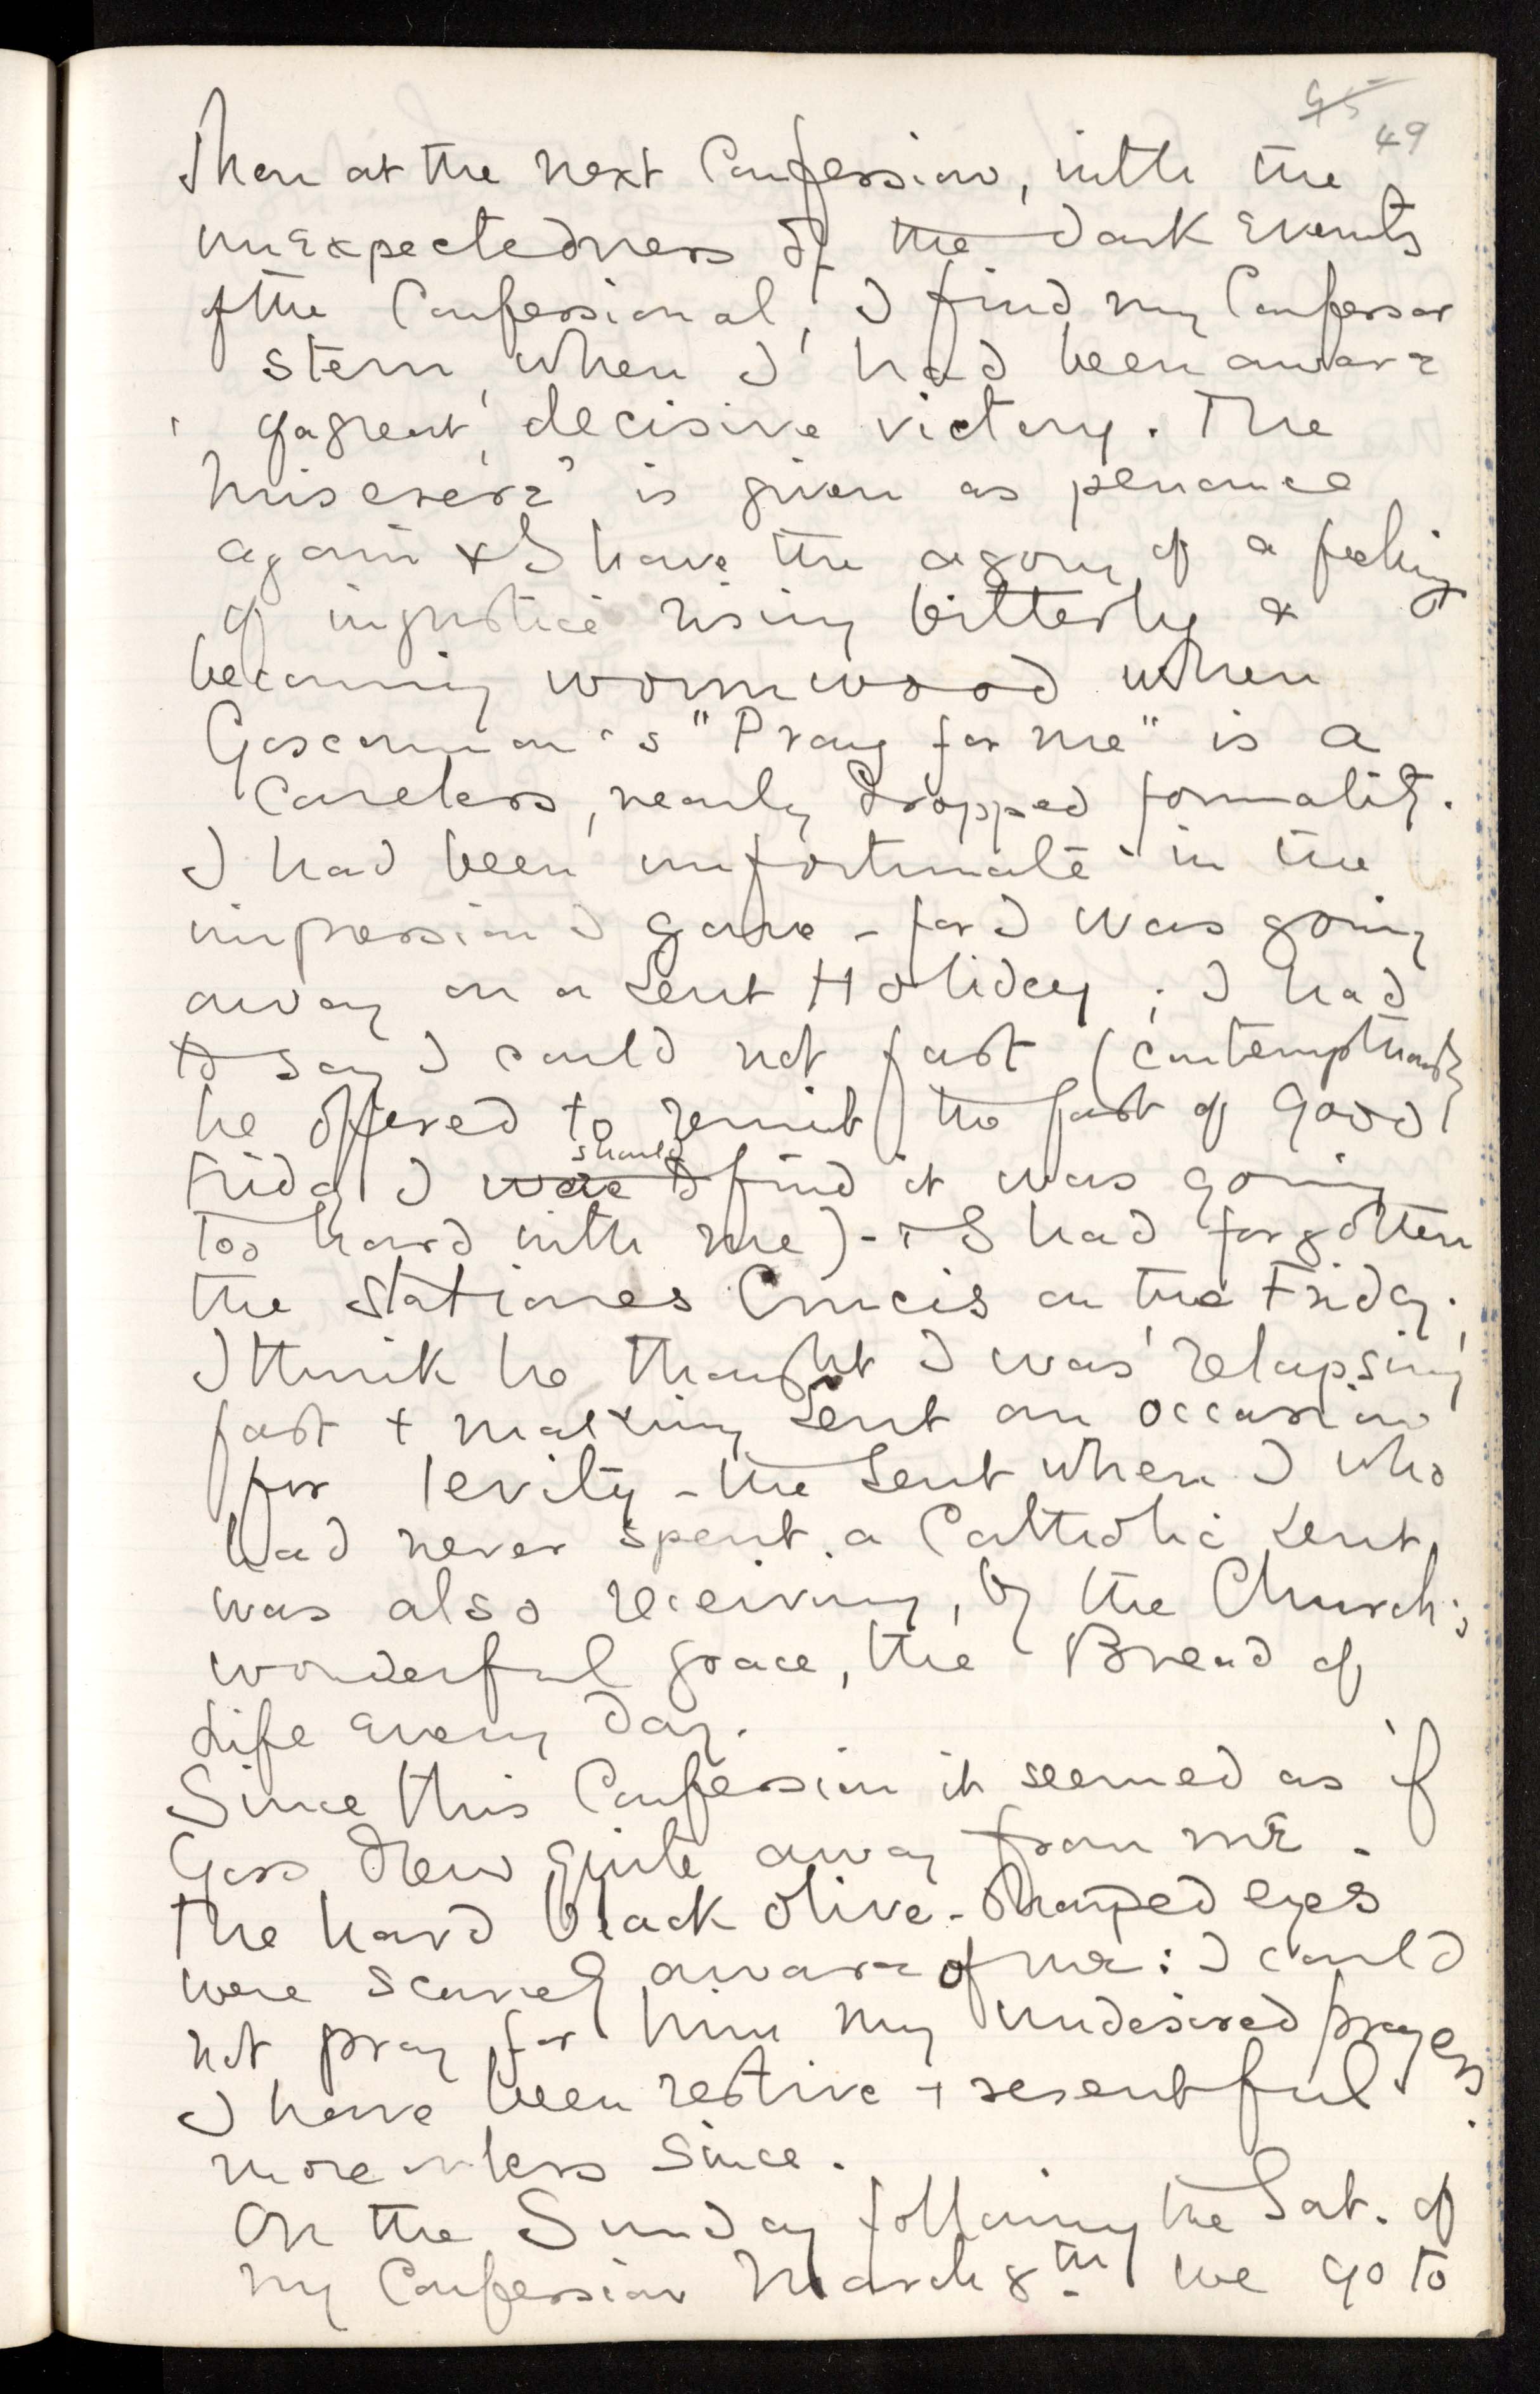 ~~45~~
49
Then at the next Confession, with the
unexpectedness of the dark events
of the Confessional, I find my Confessor
stern, when I had been aware
of a great, decisive victory. The
'miserere' is given as penance
again & I have the agony of a feeling
of injustice rising bitterly &
becoming wormwood when
Goscannon's "Pray for me" is a
careless, nearly dropped formality.
I had been unfortunate in the
impression I gave - for I was going
away on a Lent Holiday; I had
to say I could not fast (contemptuously
he offered to remit the fast of Good
Friday I ~~were to~~ should find it was going
too hard with me) - & I had forgotten
the Stationes Crucis on the Friday.
I think he thought I was relapsing
fast & making Lent an occasion
for levity - the Lent when I who
had never spent a Catholic Lent,
was also receiving, by the Church's
wonderful grace, the Bread of
Life every day.
Since this Confession it seemed as if
Gos drew quite away from me.
The hard black olive-shaped eyes
were scarcely aware of me: I could
not pray for him my undesired prayers.
I have been restive & resentful
more or less since.
On the Sunday following the Sat. of
my Confession March 8th we go to